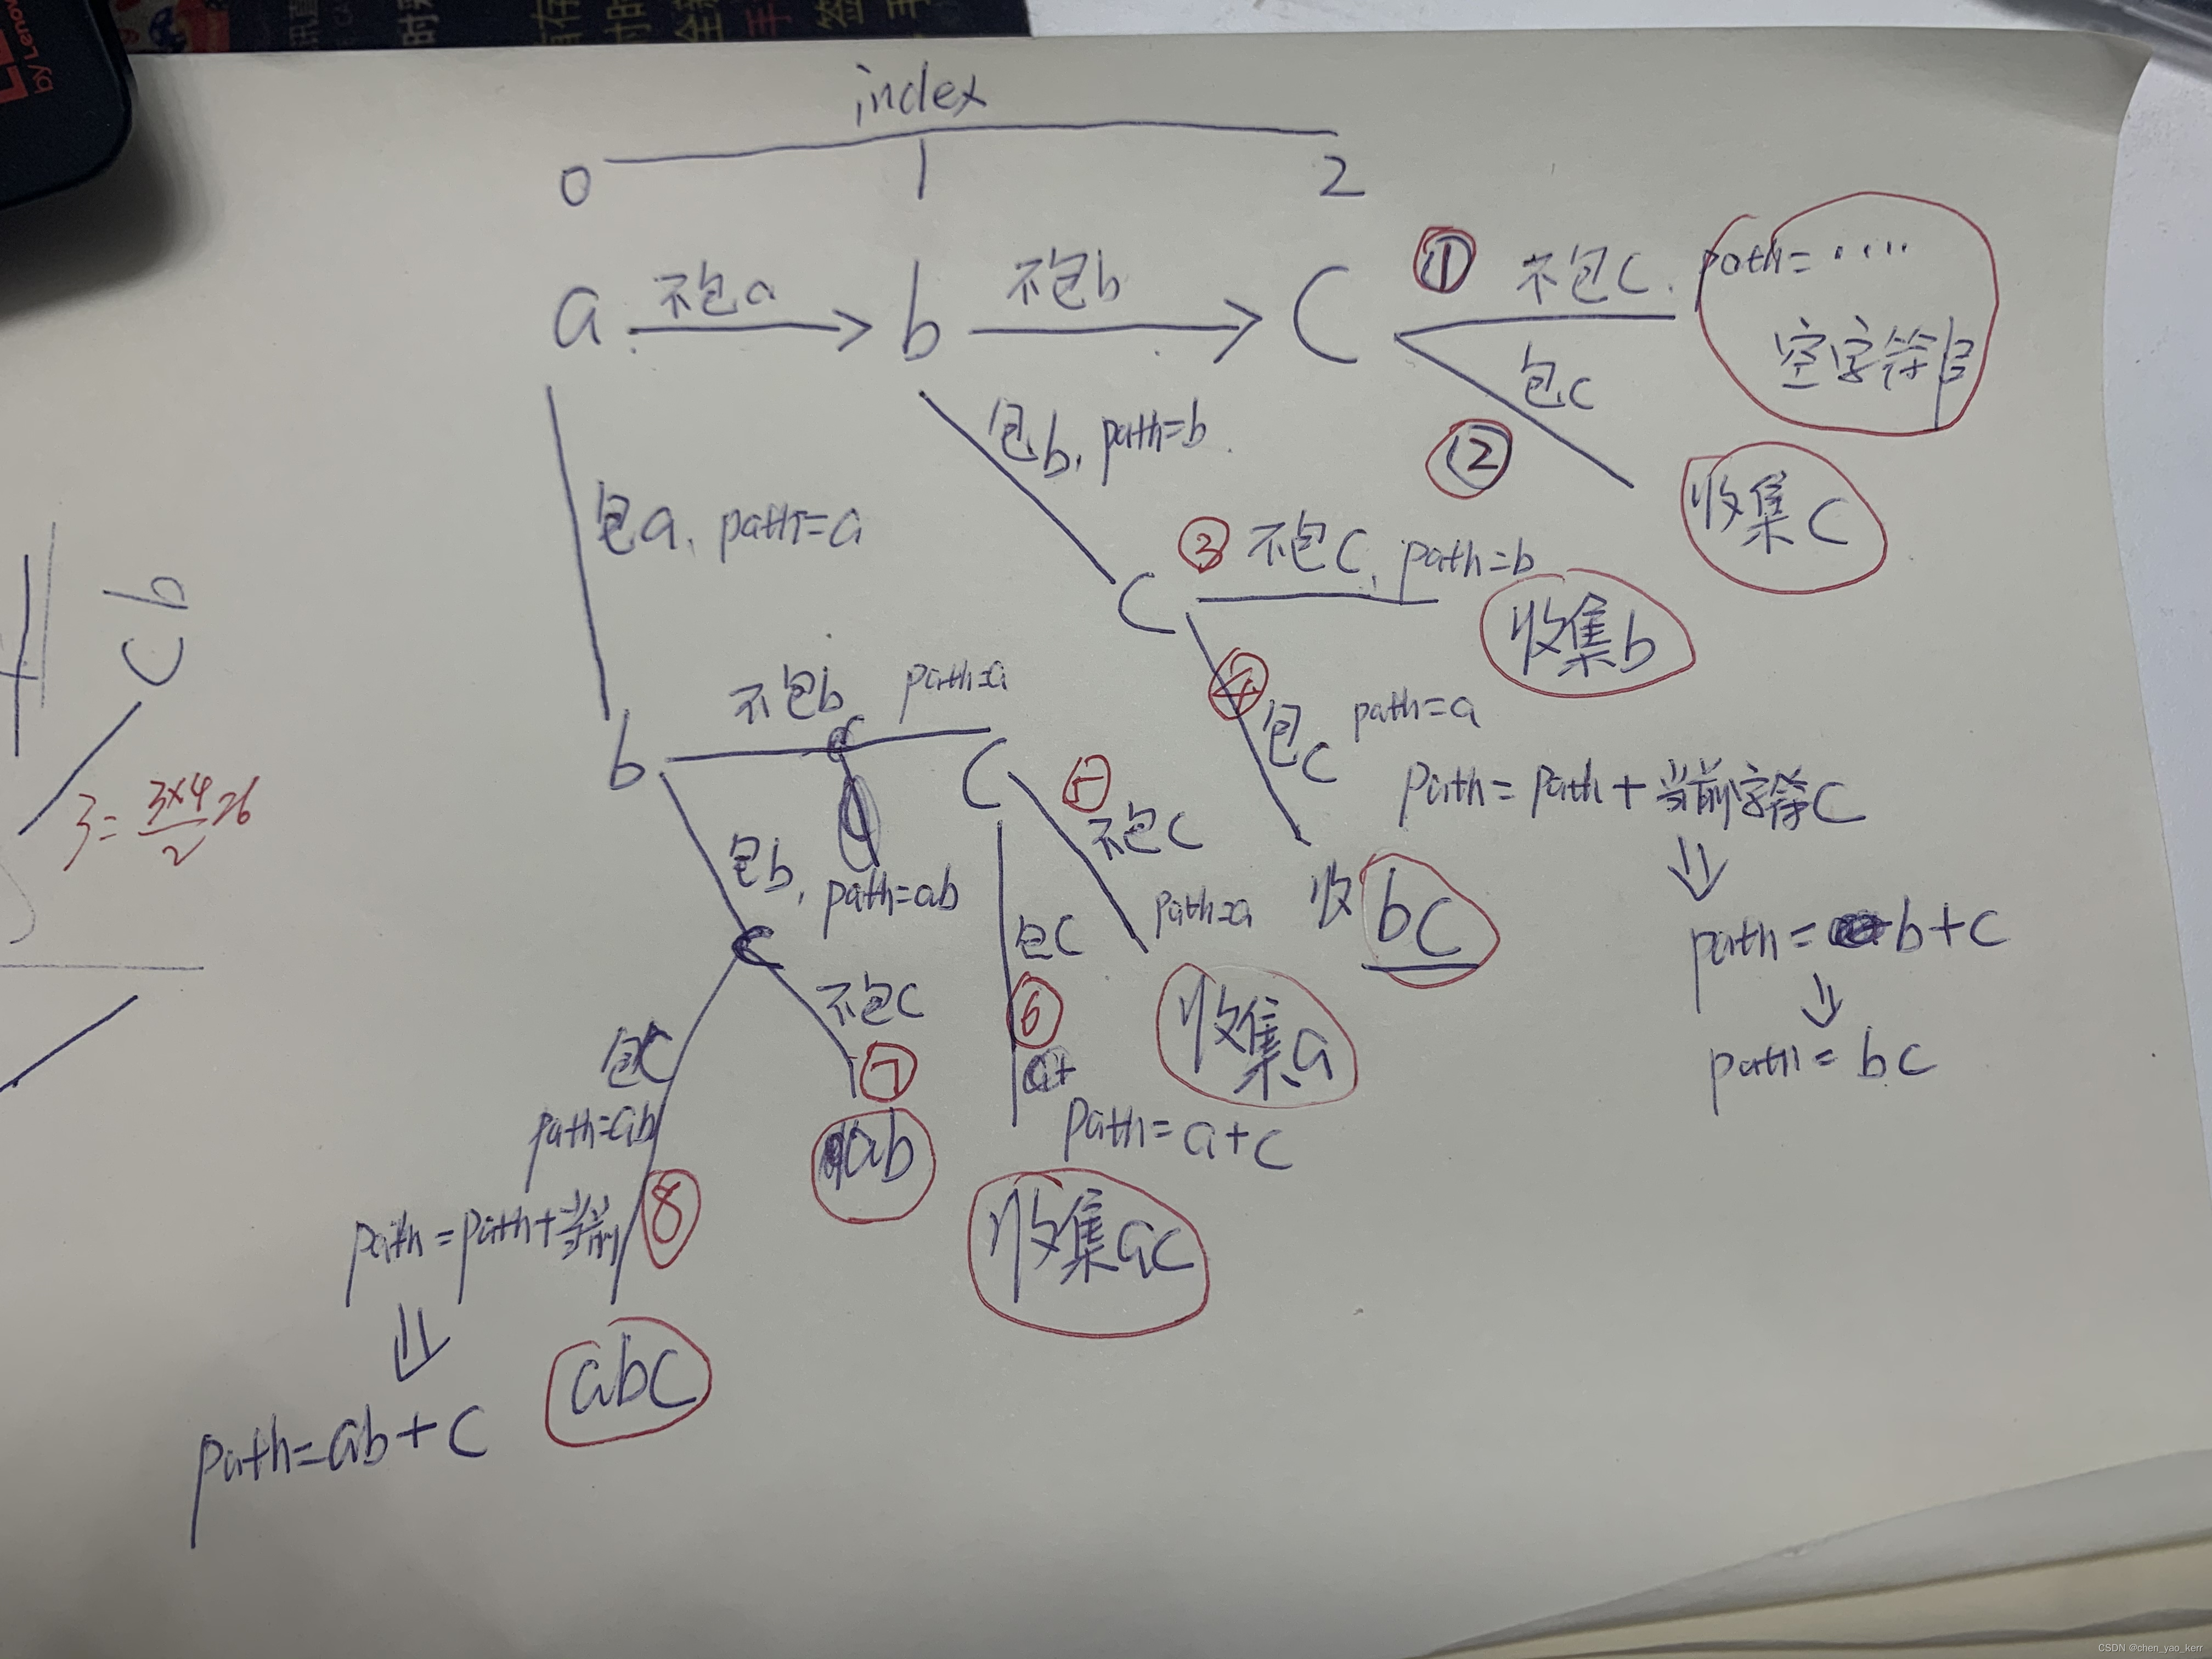 by Lenovo
index
0 1 2
a 不包a b 不包b C ① 不包C. path=····
空字符串
包C
②
收集C
包b, path=b
包a, path=a
③ 不包C, path=b
C
收集b
cb
④
包C path=a
path=path+当前字符C
path=b+c
path=bc
收bc
不包b path=a
b C
⑤
不包C
path=a
收集a
3=3×4/2=6
包b, path=ab
C
包C
⑥
a+
path=a+c
收集ac
不包C
⑦
ab
包C
path=ab
path=path+当前
⑧
abc
path=ab+c
CSDN @chen_yao_kerr